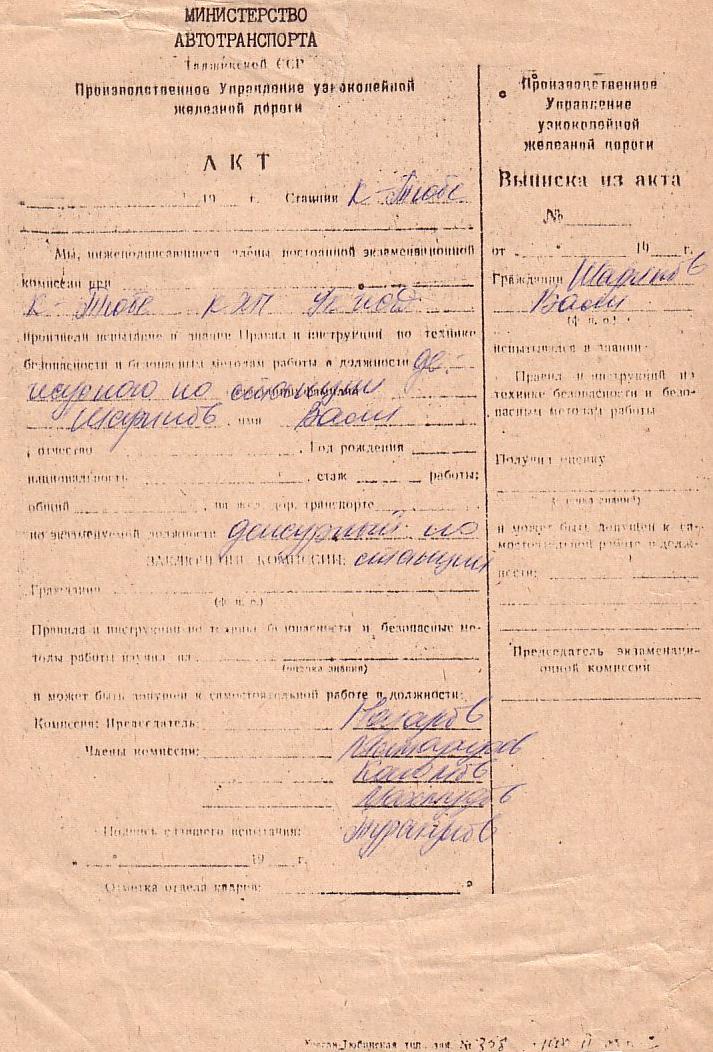 МИНИСТЕРСТВО
АВТОТРАНСПОРТА
Таджикской ССР
Производственное Управление узкоколейной
железной дороги
АКТ
19 г. Станция К-Тюбе
Мы, нижеподписавшиеся члены постоянной экзаменационной
комиссии при
К-Тюбе
произвели испытание в знании Правил и инструкций по технике
безопасности и безопасным методам работы в должности де-
журного по станции
Шарипов имя Вали
, отчество , Год рождения
национальность , стаж работы:
общий , на жел. дор. транспорте
по экзаменуемой должности дежурный по
ЗАКЛЮЧЕНИЕ КОМИССИИ: станции
Гражданин
(ф. и. о.)
Правила и инструкции по технике безопасности и безопасные ме-
тоды работы изучил на
(оценка знания)
и может быть допущен к самостоятельной работе в должности:
Комиссия: Председатель: Назаров
Члены комиссии:
Подпись сдавшего испытания:
19 г.
Отметка отдела кадров:
Производственное
Управление
узкоколейной
железной дороги
Выписка из акта
№
от 19 г.
Гражданин Шарипов
Вали
(ф. и. о.)
испытывался в знании:
Правил и инструкций по
технике безопасности и безо-
пасным методам работы
Получил оценку
(оценка знаний)
и может быть допущен к са-
мостоятельной работе в долж-
ности:
Председатель экзаменаци-
онной комиссии
Курган-Тюбинская тип. зак. № 358